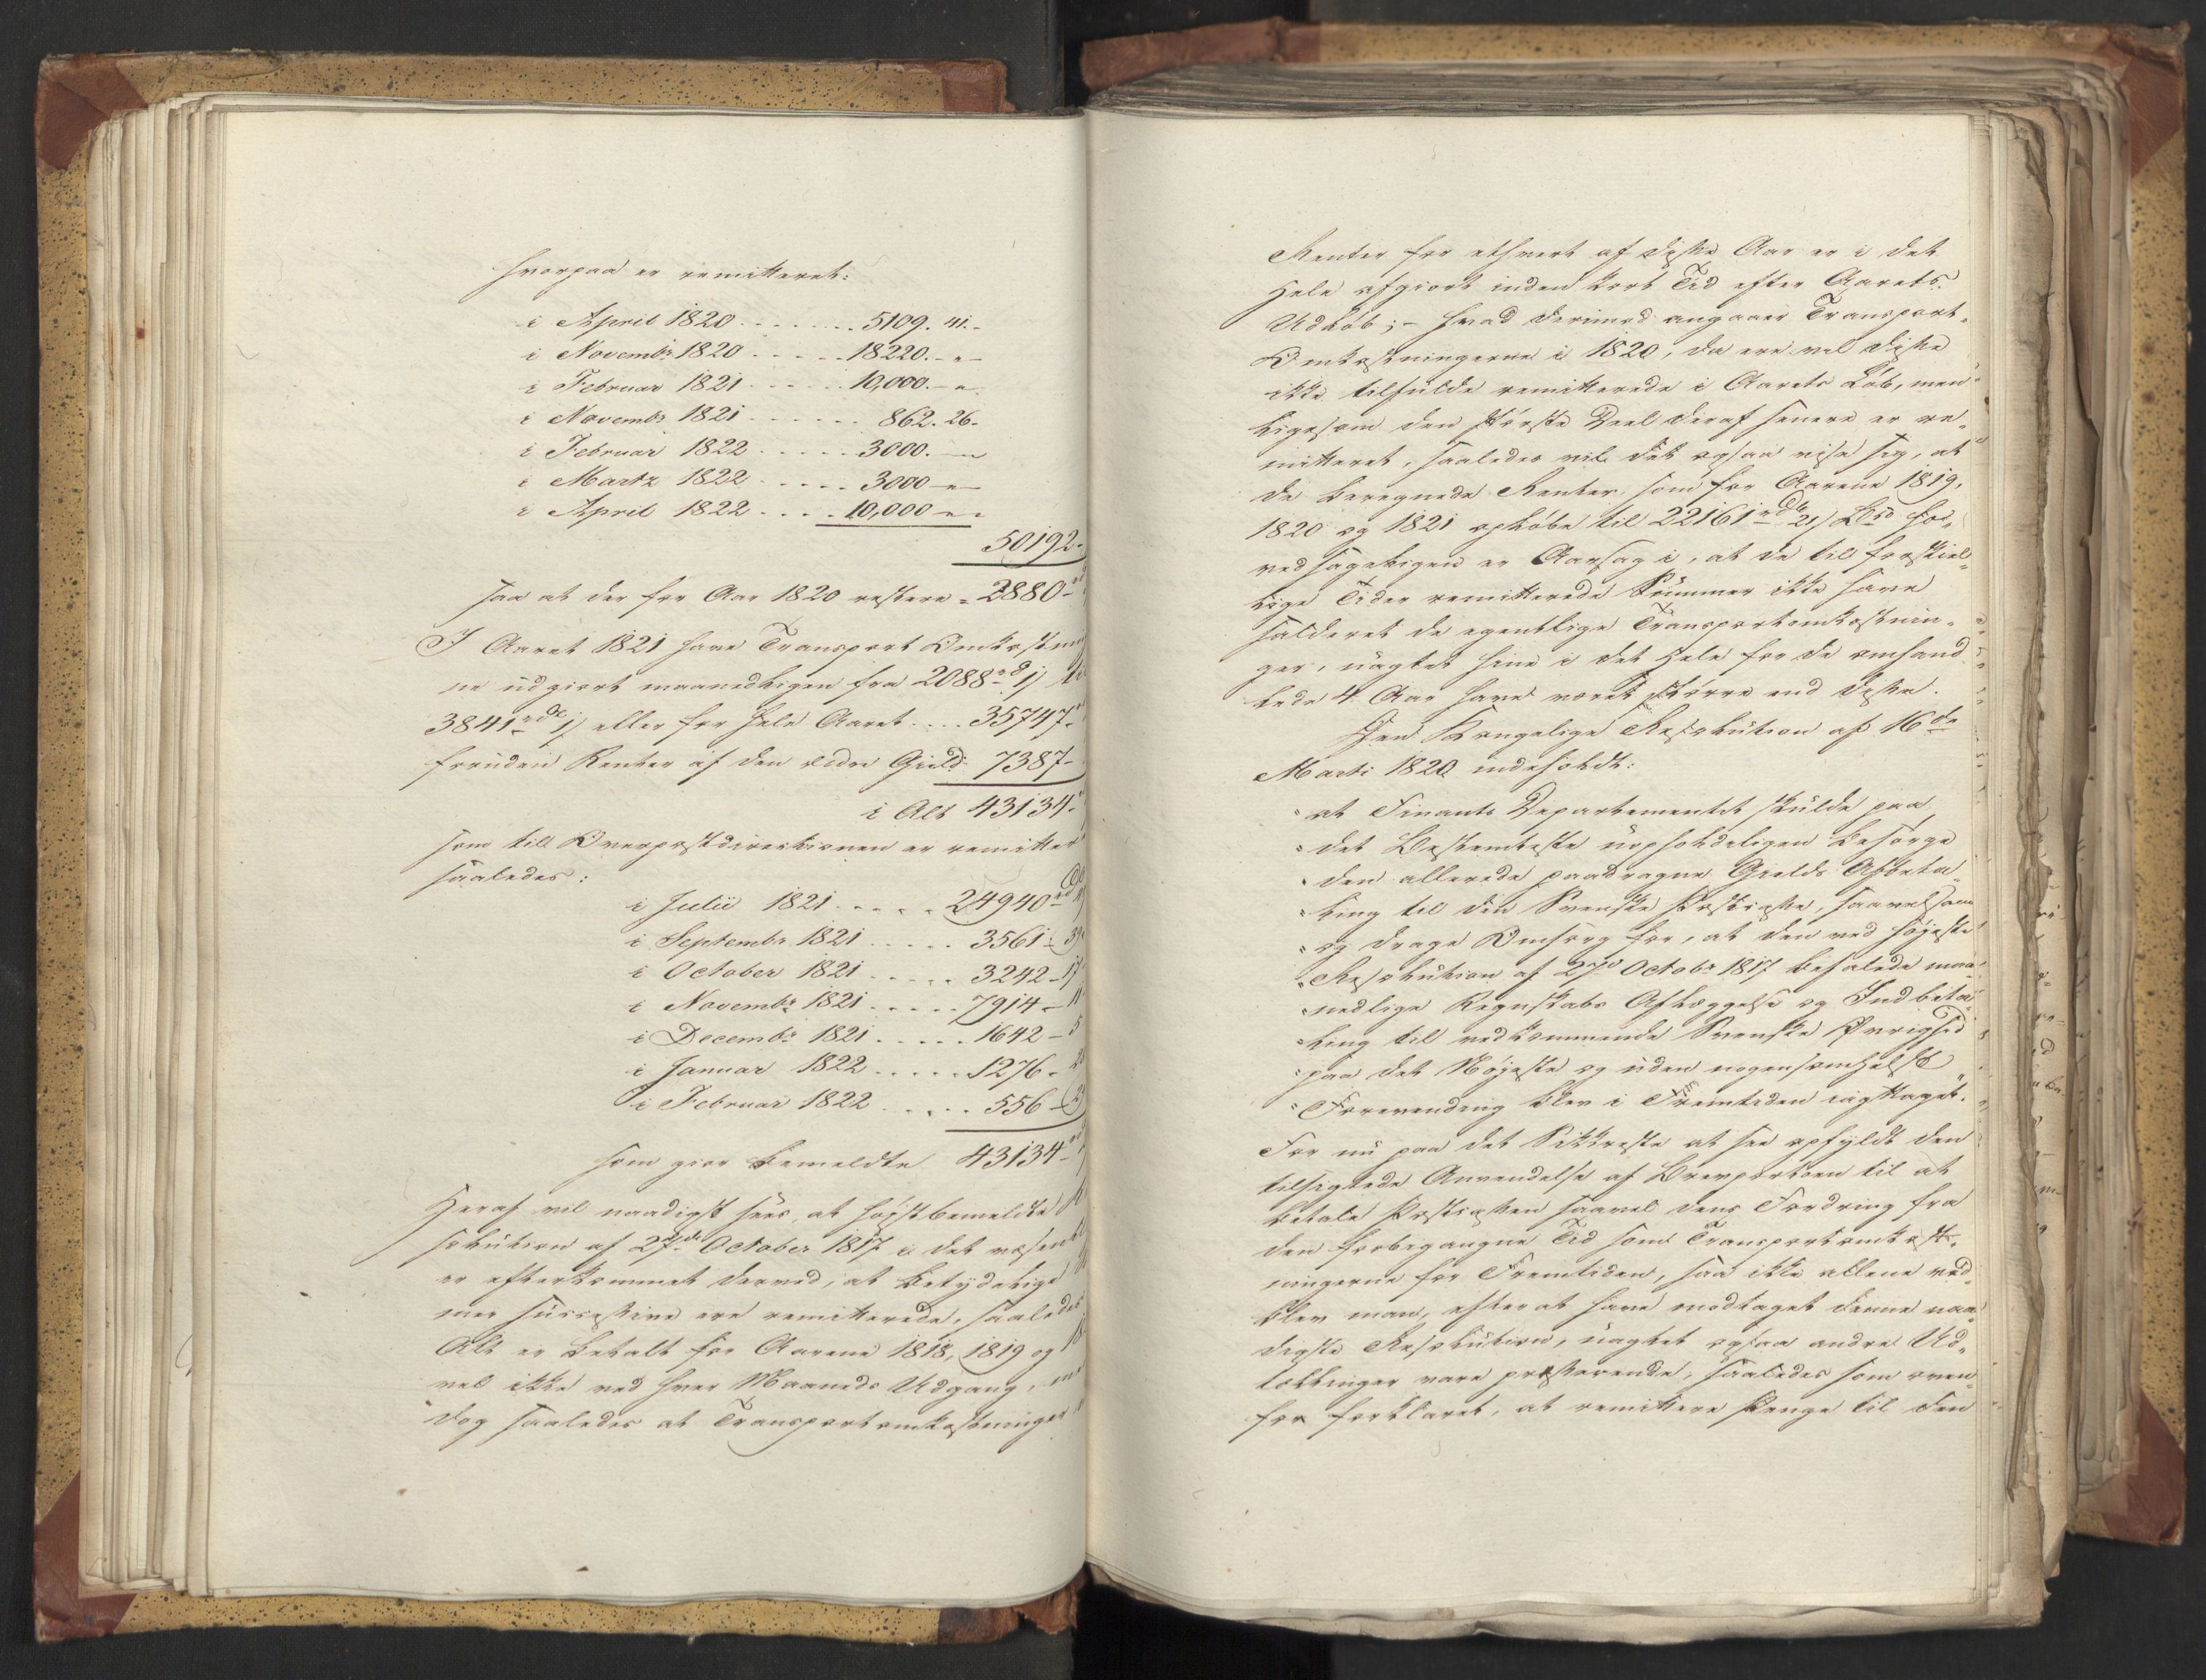 hvorpaa er remitteret:
i April 1820 . . . . . . . . 5109. 41.-
i Novembr 1820 . . . . . 18220. - " -
i Februar 1821 . . . . . 10,000. - " -
i Novembr 1821 . . . . . . 862. 26.-
i Februar 1822 . . . . . 3000. -
i Martz 1822 . . . . . 3000 - " -
i April 1822 . . . . 10,000 - " -
50192.
saa at der for Aar 1820 restere = 2880-
I Aaret 1821 have Transport Omkostnin
ne udgiort maanedligen fra 2088 rd
3841 rd eller for hele Aaret . . . . 35747.
foruden Renter af den ældre Gield 7387-
i Alt 43134-
som till Overpostdirectionen er remitter
saaledes:
i Julii 1821 . . . . . 24940
i Septembr 1821 . . . . . 3561 - 39
i October 1821 . . . . . 3242 - 17
i Novembr 1821 . . . . . 7914 - 11
i Decembr 1821 . . . . . 1642 - 5
i Januar 1822 . . . . . 1276 -
i Februar 1822 . . . . . 556 -
som gior bemeldte 43134-
Heraf vil naadigst sees, at højstbemeldte
solution af 27de October 1817 i det væsent
er efterkommet derved, at betydelige
mer successive ere remitterede, saaledes
Alt er betalt for Aarene 1818, 1819 og
vel ikke ved hver Maaneds Udgang,
dog saaledes at Transportomkostninger
Renter for ethvert af disse Aar er i det
Hele afgiort inden kort Tid efter Aarets
Udløb; - hvad derimod angaaer Transport-
Omkostningerne i 1820, da ere vel disse
ikke tilfulde remitterede i Aarets Løb, men
ligesom den største Deel deraf senere er re-
mitteret, saaledes vil det ogsaa vise sig, at
de beregnede Renter som for Aarene 1819,
1820 og 1821 opløbe til 22161 rd 21 ho-
vedsageligen er Aarsag i, at de til forskiel-
lige Tider remitterede Summer ikke have
salderet de egentlige Transportomkostnin-
ger, uagtet hine i det Hele for de omhand-
lede 4 Aar have været større end disse.
Den Kongelige Resolution af 16de
Marts 1820 indeholdt:
" at Finants Departementet skulde paa
" det Bestemteste uopholdeligen besørge
" den allerede paadragne Gields Afbeta-
" ling til den Svenske Postcasse, saavelsom
" og drage Omsorg for, at den ved højeste
" Resolution af 27de Octobr 1817 befalede maa-
" nedlige Regnskabs Aflæggelse og Indbeta-
" ling til vedkommende Svenske Øvrighed
" paa det Nøjeste og uden nogensomhelst
" Forevending blev i Fremtiden iagttaget.
For nu paa det Sikkreste at see opfyldt den
tilsigtede Anvendelse af Brevportoen til at
betale Postcassen saavel dens Fordring fra
den forbigangne Tid som Transportomkost-
ningerne for Fremtiden, saa ikke allene ved-
blev man, efter at have modtaget denne naa-
digste Resolution, uagtet ogsaa andre Ud-
tællinger vare presserende, saaledes som oven-
for forklaret, at remittere Penge til den